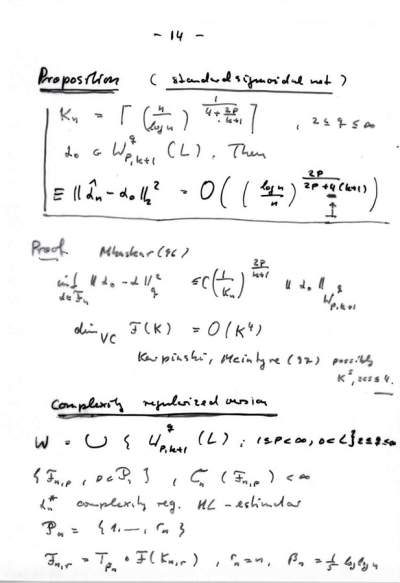 - 14 -
Proposition ( standard sigmoidal net )
K_n = ⌈ (n / log n)^{1 / (4 + 2p/(k+1))} ⌉ , 2 ≤ q ≤ ∞
α_0 ∈ W^q_{p,k+1} (L) . Then
E || α̂_n - α_0 ||_2^2 = O( ( log n / n )^{2p / (2p + 4(k+1))} )
Proof Mhaskar (96)
inf_{α∈F_n} || α_0 - α ||_q^2 ≤ C (1/K_n)^{2p/(k+1)} || α_0 ||_{W^q_{p,k+1}}
dim_{VC} F(K) = O(K^4)
Karpinski, Macintyre (97) possibly
K^s, 2≤s≤4.
Complexity regularized version
W = ∪ { W^q_{p,k+1} (L) ; 1≤p<∞, 0<L} 2≤q≤∞
{ F_{n,p} , p∈P_n } , C_n (F_{n,p}) < ∞
α_n^* complexity reg. ML - estimator
P_n = { 1, ..., r_n }
F_{n,r} = T_{β_n} ∘ F(K_{n,r}) , r_n = n, β_n = log log n